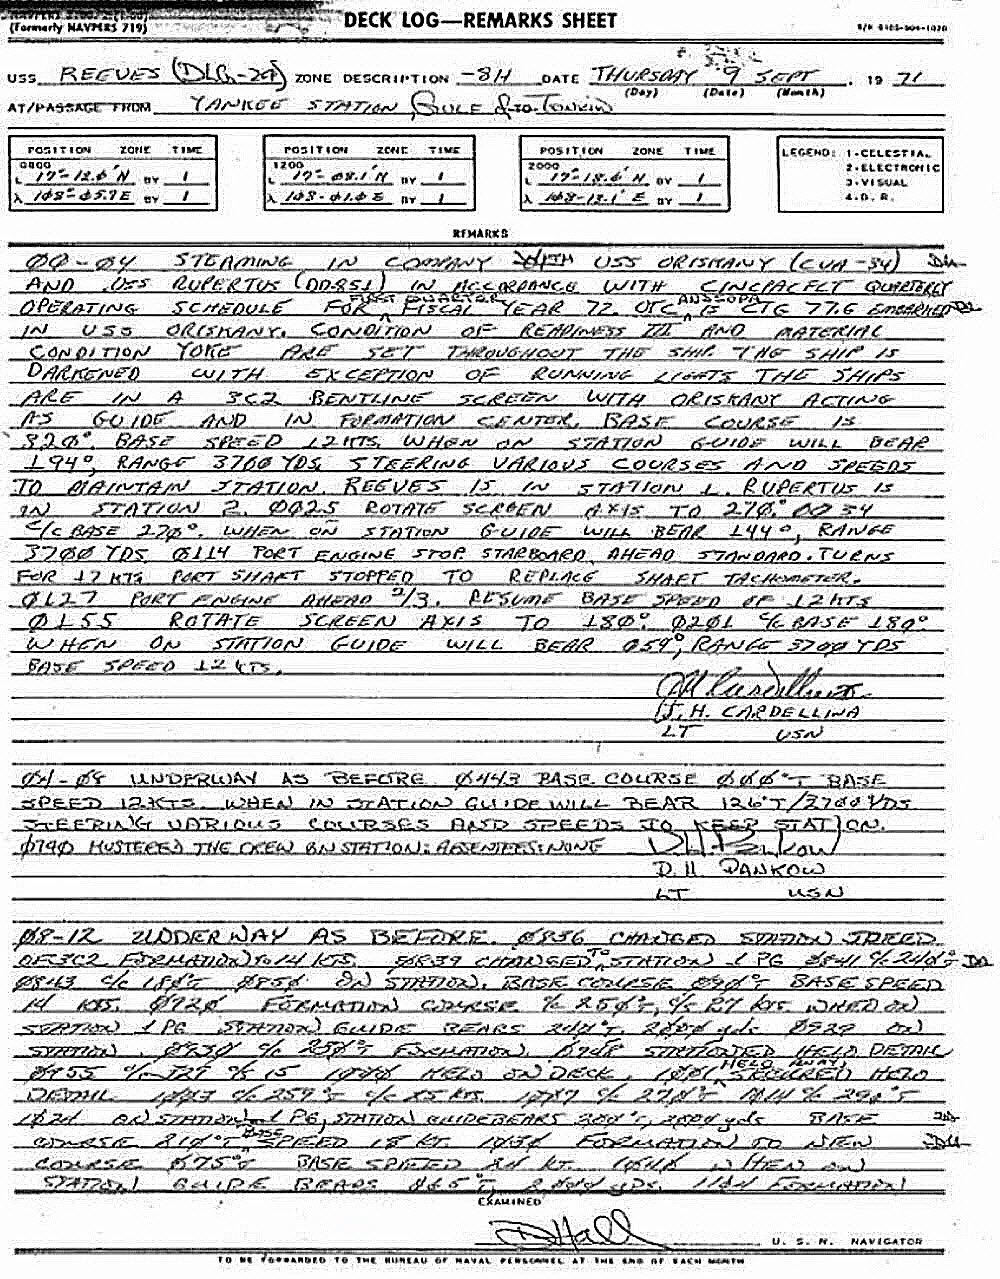 (Formerly NAVPERS 719)
DECK LOG—REMARKS SHEET
USS REEVES (DLG-24) ZONE DESCRIPTION -8H DATE THURSDAY 9 SEPT , 19 71
(Day) (Date) (Month)
AT/PASSAGE FROM YANKEE STATION, GULF OF TONKIN
POSITION ZONE TIME
0800
L 17°-12.6'N BY 1
λ 108°-05.9E BY 1
POSITION ZONE TIME
1200
L 17°-08.1'N BY 1
λ 108-01.0E BY 1
POSITION ZONE TIME
2000
L 17°-18.6'N BY 1
λ 108-12.1'E BY 1
LEGEND: 1-CELESTIAL
2-ELECTRONIC
3-VISUAL
4-D.R.
REMARKS
00-04 STEAMING IN COMPANY WITH USS ORISKANY (CVA-34)
AND USS RUPERTUS (DD851) IN ACCORDANCE WITH CINCPACFLT QUARTERLY
OPERATING SCHEDULE FOR FIRST QUARTER FISCAL YEAR 72. OTC AND SOPA IS CTG 77.6 EMBARKED
IN USS ORISKANY. CONDITION OF READINESS III AND MATERIAL
CONDITION YOKE ARE SET THROUGHOUT THE SHIP. THE SHIP IS
DARKENED WITH EXCEPTION OF RUNNING LIGHTS THE SHIPS
ARE IN A 3C2 BENTLINE SCREEN WITH ORISKANY ACTING
AS GUIDE AND IN FORMATION CENTER. BASE COURSE IS
320°. BASE SPEED 12KTS. WHEN ON STATION GUIDE WILL BEAR
194°, RANGE 3700 YDS. STEERING VARIOUS COURSES AND SPEEDS
TO MAINTAIN STATION. REEVES IS IN STATION 1. RUPERTUS IS
IN STATION 2. 0025 ROTATE SCREEN AXIS TO 270°. 0034
C/C BASE 270°. WHEN ON STATION GUIDE WILL BEAR 144°, RANGE
3700 YDS 0114 PORT ENGINE STOP STARBOARD AHEAD STANDARD. TURNS
FOR 17 KTS PORT SHAFT STOPPED TO REPLACE SHAFT TACHOMETER.
0127 PORT ENGINE AHEAD 2/3. RESUME BASE SPEED OF 12KTS
0155 ROTATE SCREEN AXIS TO 180°. 0201 C/C BASE 180°
WHEN ON STATION GUIDE WILL BEAR 054°, RANGE 3700 YDS
BASE SPEED 12 KTS.
J. H. CARDELLINA
LT USN
04-08 UNDERWAY AS BEFORE. 0443 BASE COURSE 000°T BASE
SPEED 12KTS. WHEN IN STATION GUIDE WILL BEAR 126°T/3700YDS
STEERING VARIOUS COURSES AND SPEEDS TO KEEP STATION.
0740 MUSTERED THE CREW ON STATION: ABSENTEES: NONE
D. H. PANKOW
LT USN
08-12 UNDERWAY AS BEFORE. 0836 CHANGED STATION SPEED
OF 3C2 FORMATION TO 14 KTS. 0839 CHANGED TO STATION 1 PG 0841 C/C 240°T
0843 C/C 180°T 0850 ON STATION. BASE COURSE 090°T BASE SPEED
14 KTS. 0920 FORMATION COURSE C/C 250°T, C/S 27 KTS. WHEN ON
STATION 1 PG STATION GUIDE BEARS 240°T. 2000 yds 0929 ON
STATION. 0930 C/C 250°T FORMATION. 0948 STATIONED HELO DETAIL
0955 C/C 327 C/S 15 1000 HELO ON DECK. 1001 HELO AWAY SECURED HELO
DETAIL 1003 C/C 259°T C/S 25 KTS. 1007 C/C 270°T 1014 C/C 290°T
1024 ON STATION 1 PG, STATION GUIDE BEARS 200°T, 2000 yds BASE
COURSE 210°T BASE SPEED 18 KT. 1030 FORMATION TO NEW
COURSE 075°T BASE SPEED 24 KT. 1040 WHEN ON
STATION 1 GUIDE BEARS 065°T, 2000 yds. 1104 FORMATION
EXAMINED
D Hall
U. S. N. NAVIGATOR
TO BE FORWARDED TO THE BUREAU OF NAVAL PERSONNEL AT THE END OF EACH MONTH